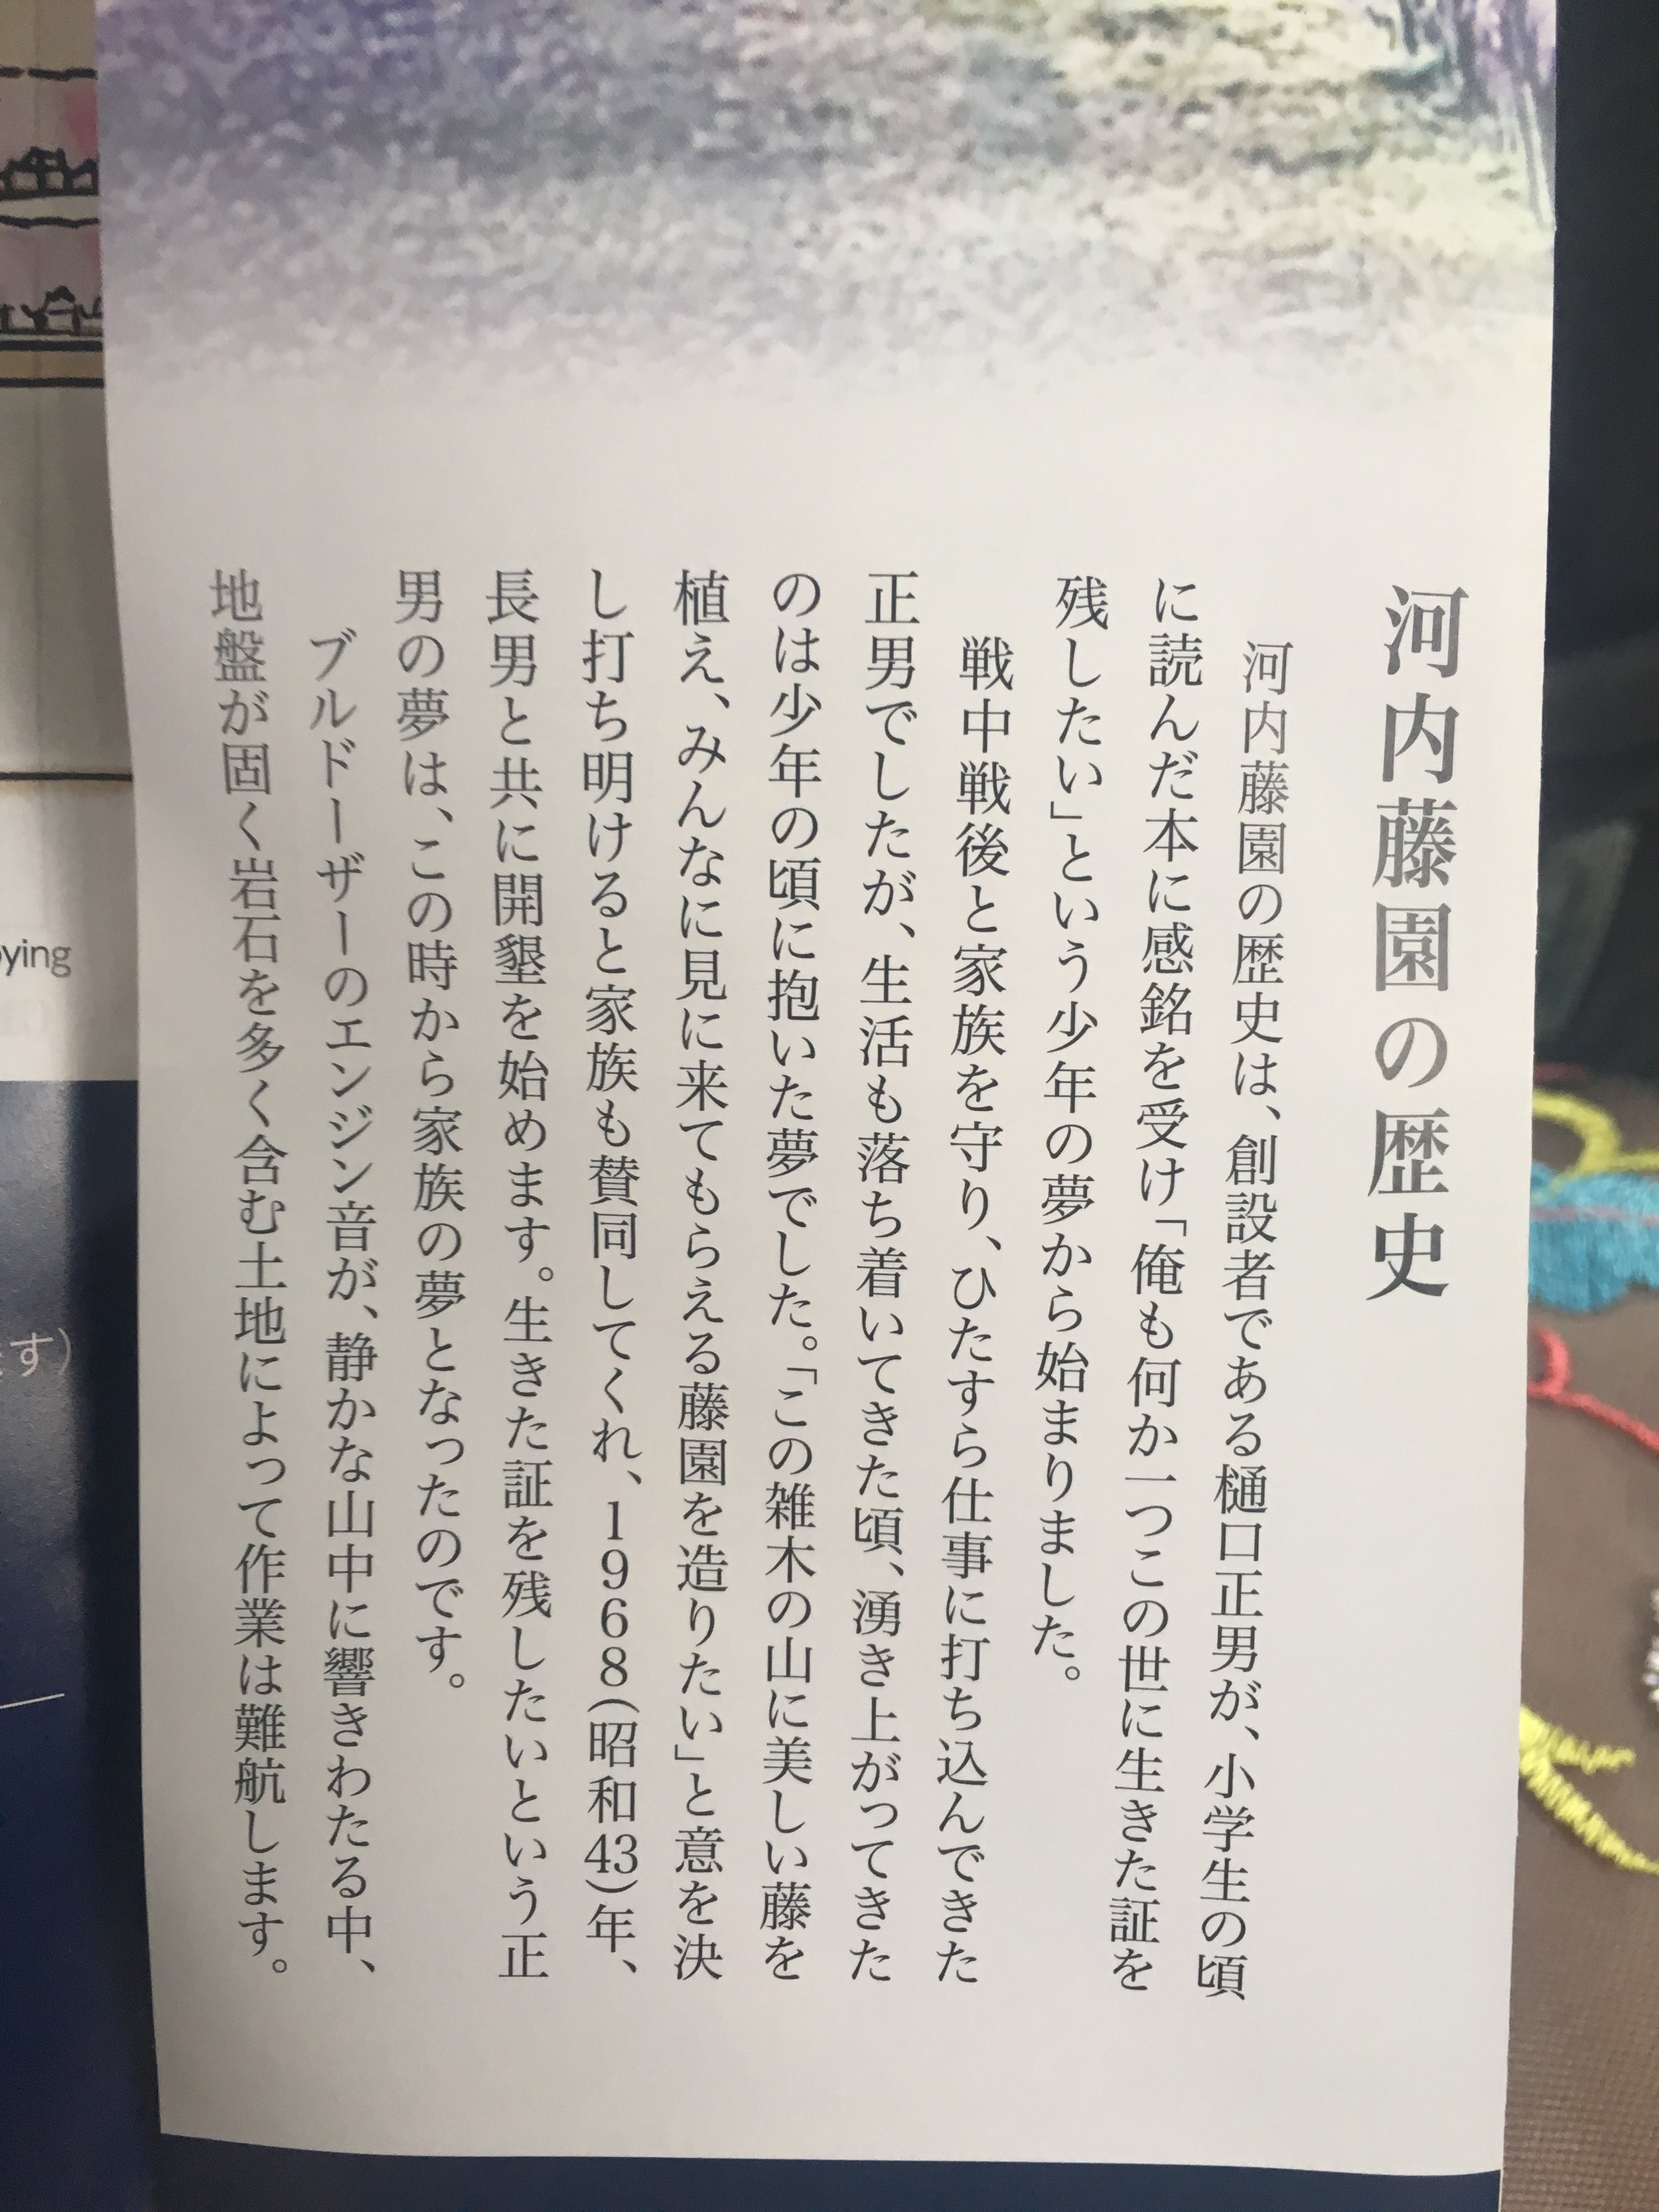 河内藤園の歴史
河内藤園の歴史は、創設者である樋口正男が、小学生の頃
に読んだ本に感銘を受け「俺も何か一つこの世に生きた証を
残したい」という少年の夢から始まりました。
戦中戦後と家族を守り、ひたすら仕事に打ち込んできた
正男でしたが、生活も落ち着いてきた頃、湧き上がってきた
のは少年の頃に抱いた夢でした。「この雑木の山に美しい藤を
植え、みんなに見に来てもらえる藤園を造りたい」と意を決
し打ち明けると家族も賛同してくれ、1968(昭和43)年、
長男と共に開墾を始めます。生きた証を残したいという正
男の夢は、この時から家族の夢となったのです。
ブルドーザーのエンジン音が、静かな山中に響きわたる中、
地盤が固く岩石を多く含む土地によって作業は難航します。
ying
す)